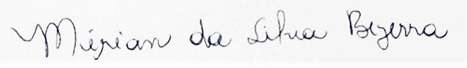 Mírian da Silva Bezerra